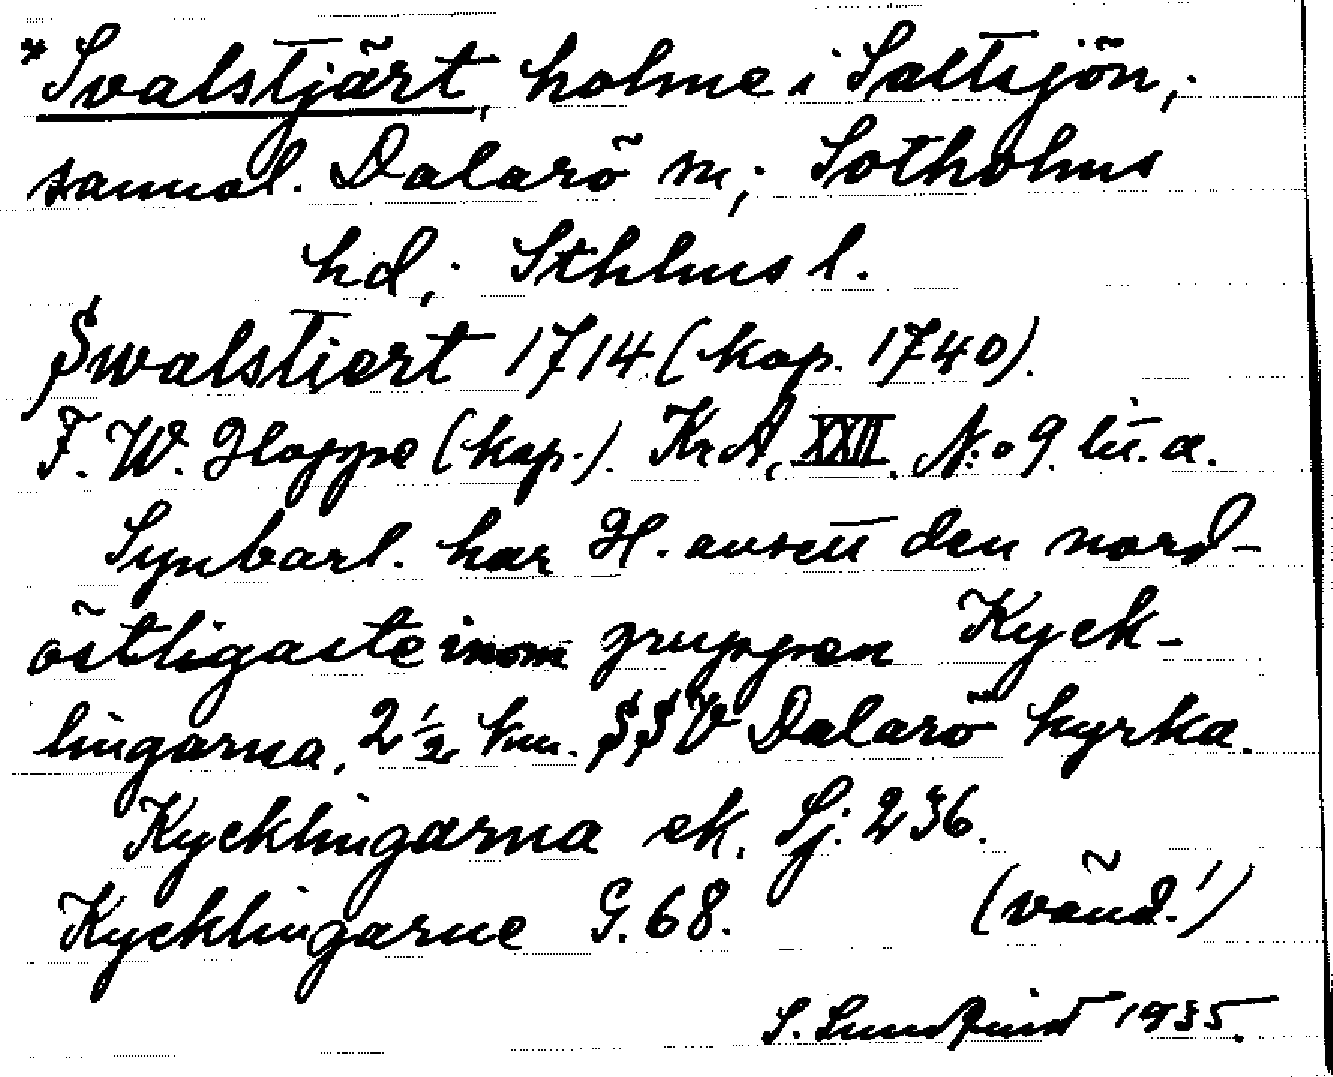 *Svalstjärt, holme i Saltsjön,
samal. Dalarö sn; Sotholms
hd; Sthlms l.
Swalstiert 1714 (kop. 1740).
F. W. Hoppe (kop.). KrA, XXII. N:o 9. lit. a.
Synbarl. har H. avsett den nord-
östligaste inom gruppen Kyck-
lingarna, 2 1/2 km. SSV Dalarö kyrka.
Kycklingarna ek. Sj. 236.
Kycklingarne G. 68. (vänd!)
S. 1935.